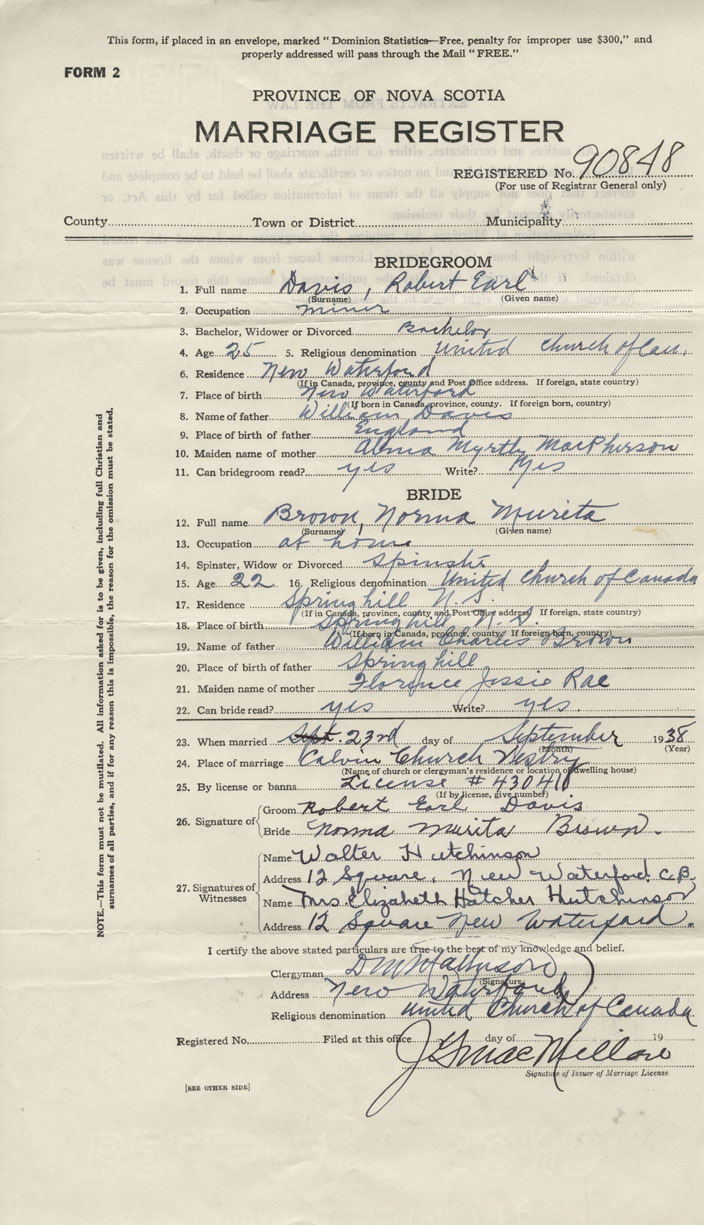 This form, if placed in an envelope, marked " Dominion Statistics—Free, penalty for improper use $300," and
properly addressed will pass through the Mail " FREE."
FORM 2
PROVINCE OF NOVA SCOTIA
MARRIAGE REGISTER
REGISTERED No. 90848
(For use of Registrar General only)
County Town or District Municipality
BRIDEGROOM
1. Full name Davis, Robert Earl
(Surname) (Given name)
2. Occupation miner
3. Bachelor, Widower or Divorced Bachelor
4. Age 25 5. Religious denomination United Church of Can.
6. Residence New Waterford
(If in Canada, province, county and Post Office address. If foreign, state country)
7. Place of birth New Waterford
(If born in Canada, province, county. If foreign born, country)
8. Name of father William Davis
9. Place of father England
10. Maiden name of mother Alma Myrtle MacPherson
11. Can bridegroom read? yes Write? Yes
BRIDE
12. Full name Brown, Norma Murita
(Surname) (Given name)
13. Occupation at home
14. Spinster, Widow or Divorced Spinster
15. Age 22 16. Religious denomination United Church of Canada
17. Residence Springhill N.S.
(If in Canada, province, county and Post Office address If foreign, state country)
18. Place of birth Springhill N.S.
(If born in Canada, province, county. If foreign born, country)
19. Name of father William Charles Brown
20. Place of birth of father Springhill
21. Maiden name of mother Florence Jessie Rae
22. Can bride read? yes Write? yes.
23. When married Sept. 23rd day of September 1938
(Month) (Year)
24. Place of marriage Calvin Church Vestry
(Name of church or clergyman's residence or location of dwelling house)
25. By license or banns License # 430410
(If by license, give number)
26. Signature of Groom Robert Earl Davis
Bride Norma Murita Brown.
27. Signatures of Witnesses
Name Walter Hutchinson
Address 12 Square, New Waterford. C.B.
Name Mrs. Elizabeth Hatcher Hutchinson
Address 12 Square New Waterford.
I certify the above stated particulars are true to the best of my knowledge and belief.
Clergyman
(Signature
Address New Waterford
Religious denomination United Church of Canada
Registered No. Filed at this office day of 19
J G MacMillan
Signature of Issuer of Marriage License
[SEE OTHER SIDE]
NOTE.—This form must not be mutilated. All information asked for is to be given, including full Christian and
surnames of all parties, and if for any reason this is impossible, the reason for the omission must be stated.